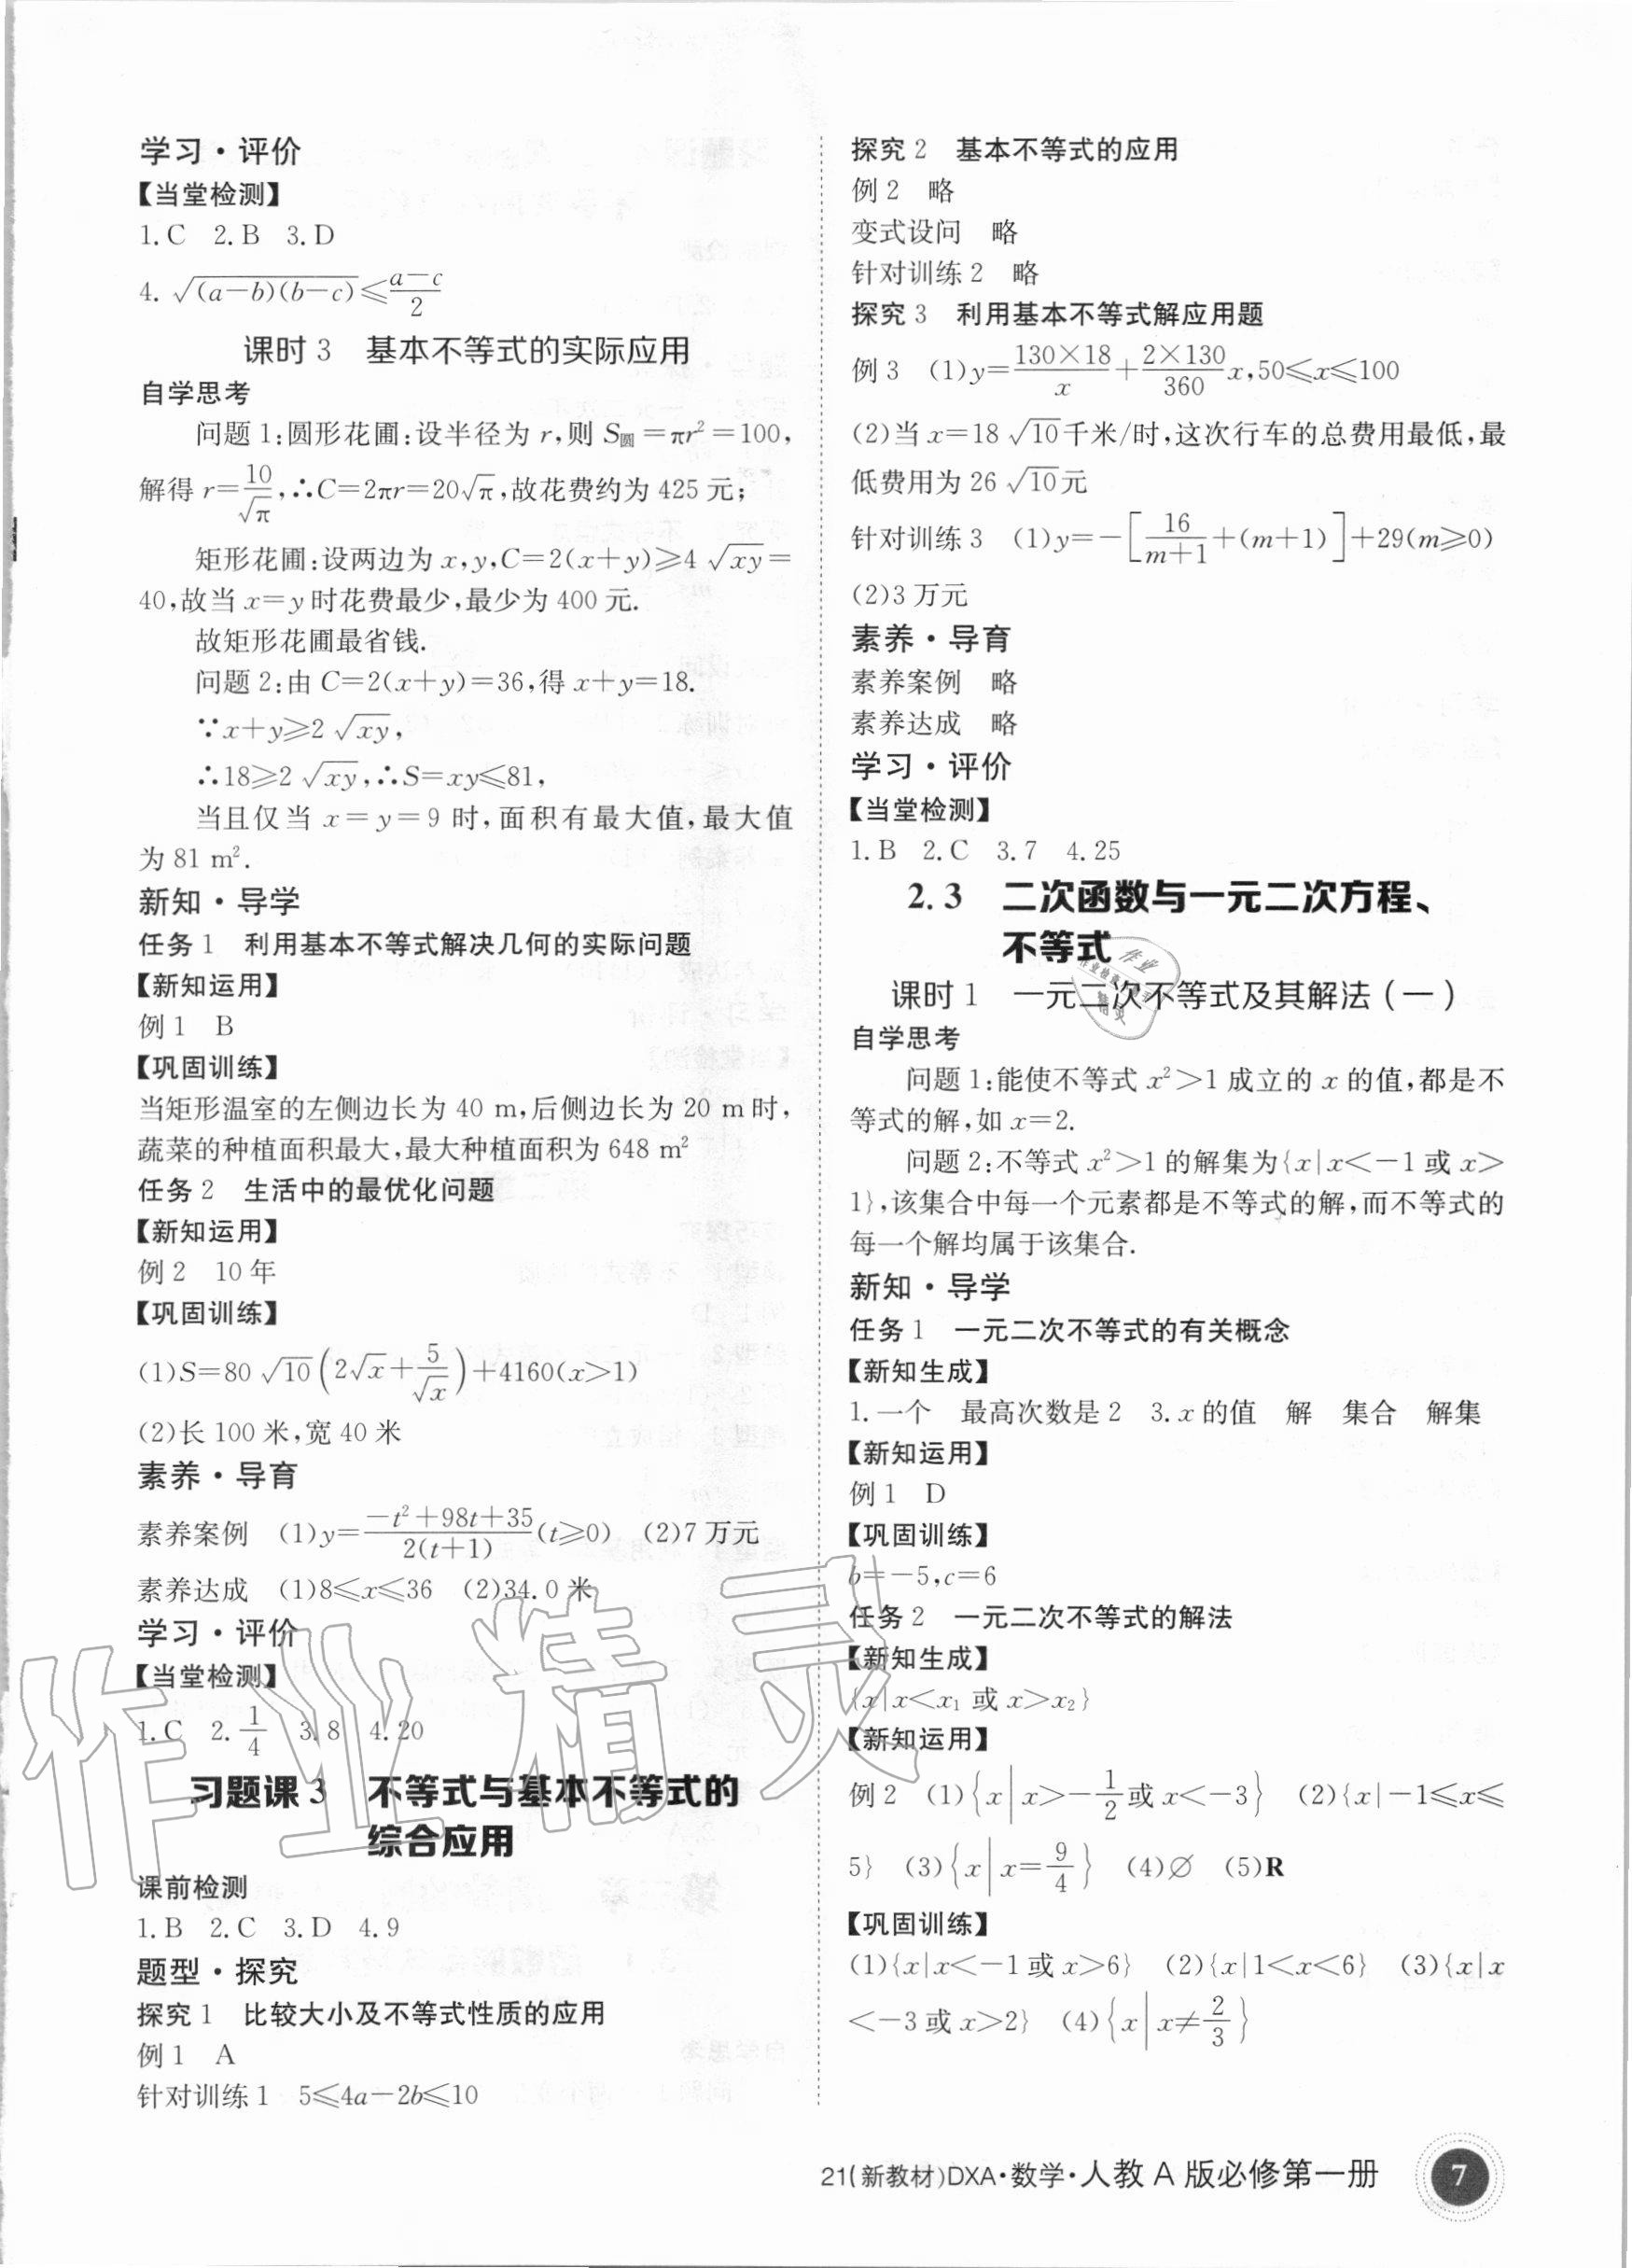 学习·评价
【当堂检测】
1.C 2.B 3.D
4. √(a-b)(b-c)≤(a-c)/2
课时3 基本不等式的实际应用
自学思考
问题1:圆形花圃:设半径为r,则S圆=πr²=100,
解得r=10/√π,∴C=2πr=20√π,故花费约为425元;
矩形花圃:设两边为x,y,C=2(x+y)≥4√xy=
40,故当x=y时花费最少,最少为400元.
故矩形花圃最省钱.
问题2:由C=2(x+y)=36,得x+y=18.
∵x+y≥2√xy,
∴18≥2√xy,∴S=xy≤81,
当且仅当x=y=9时,面积有最大值,最大值
为81 m².
新知·导学
任务1 利用基本不等式解决几何的实际问题
【新知运用】
例1 B
【巩固训练】
当矩形温室的左侧边长为40 m,后侧边长为20 m时,
蔬菜的种植面积最大,最大种植面积为648 m²
任务2 生活中的最优化问题
【新知运用】
例2 10年
【巩固训练】
(1)S=80√10(2√x+5/√x)+4160(x>1)
(2)长100米,宽40米
素养·导育
素养案例 (1)y=(-t²+98t+35)/(2(t+1))(t≥0) (2)7万元
素养达成 (1)8≤x≤36 (2)34.0米
学习·评价
【当堂检测】
1.C 2.1/4 3.8 4.20
习题课3 不等式与基本不等式的
综合应用
课前检测
1.B 2.C 3.D 4.9
题型·探究
探究1 比较大小及不等式性质的应用
例1 A
针对训练1 5≤4a-2b≤10
探究2 基本不等式的应用
例2 略
变式设问 略
针对训练2 略
探究3 利用基本不等式解应用题
例3 (1)y=(130×18)/x+(2×130)/360 x,50≤x≤100
(2)当x=18√10千米/时,这次行车的总费用最低,最
低费用为26√10元
针对训练3 (1)y=-[16/(m+1)+(m+1)]+29(m≥0)
(2)3万元
素养·导育
素养案例 略
素养达成 略
学习·评价
【当堂检测】
1.B 2.C 3.7 4.25
2.3 二次函数与一元二次方程、
不等式
课时1 一元二次不等式及其解法(一)
自学思考
问题1:能使不等式x²>1成立的x的值,都是不
等式的解,如x=2.
问题2:不等式x²>1的解集为{x|x<-1或x>
1},该集合中每一个元素都是不等式的解,而不等式的
每一个解均属于该集合.
新知·导学
任务1 一元二次不等式的有关概念
【新知生成】
1.一个 最高次数是2 3.x的值 解 集合 解集
【新知运用】
例1 D
【巩固训练】
b=-5,c=6
任务2 一元二次不等式的解法
【新知生成】
{x|x<x₁或x>x₂}
【新知运用】
例2 (1){x|x>-1/2或x<-3} (2){x|-1≤x≤
5} (3){x|x=9/4} (4)∅ (5)R
【巩固训练】
(1){x|x<-1或x>6} (2){x|1<x<6} (3){x|x
<-3或x>2} (4){x|x≠2/3}
作业精灵
21(新教材)DXA·数学·人教A版必修第一册 7